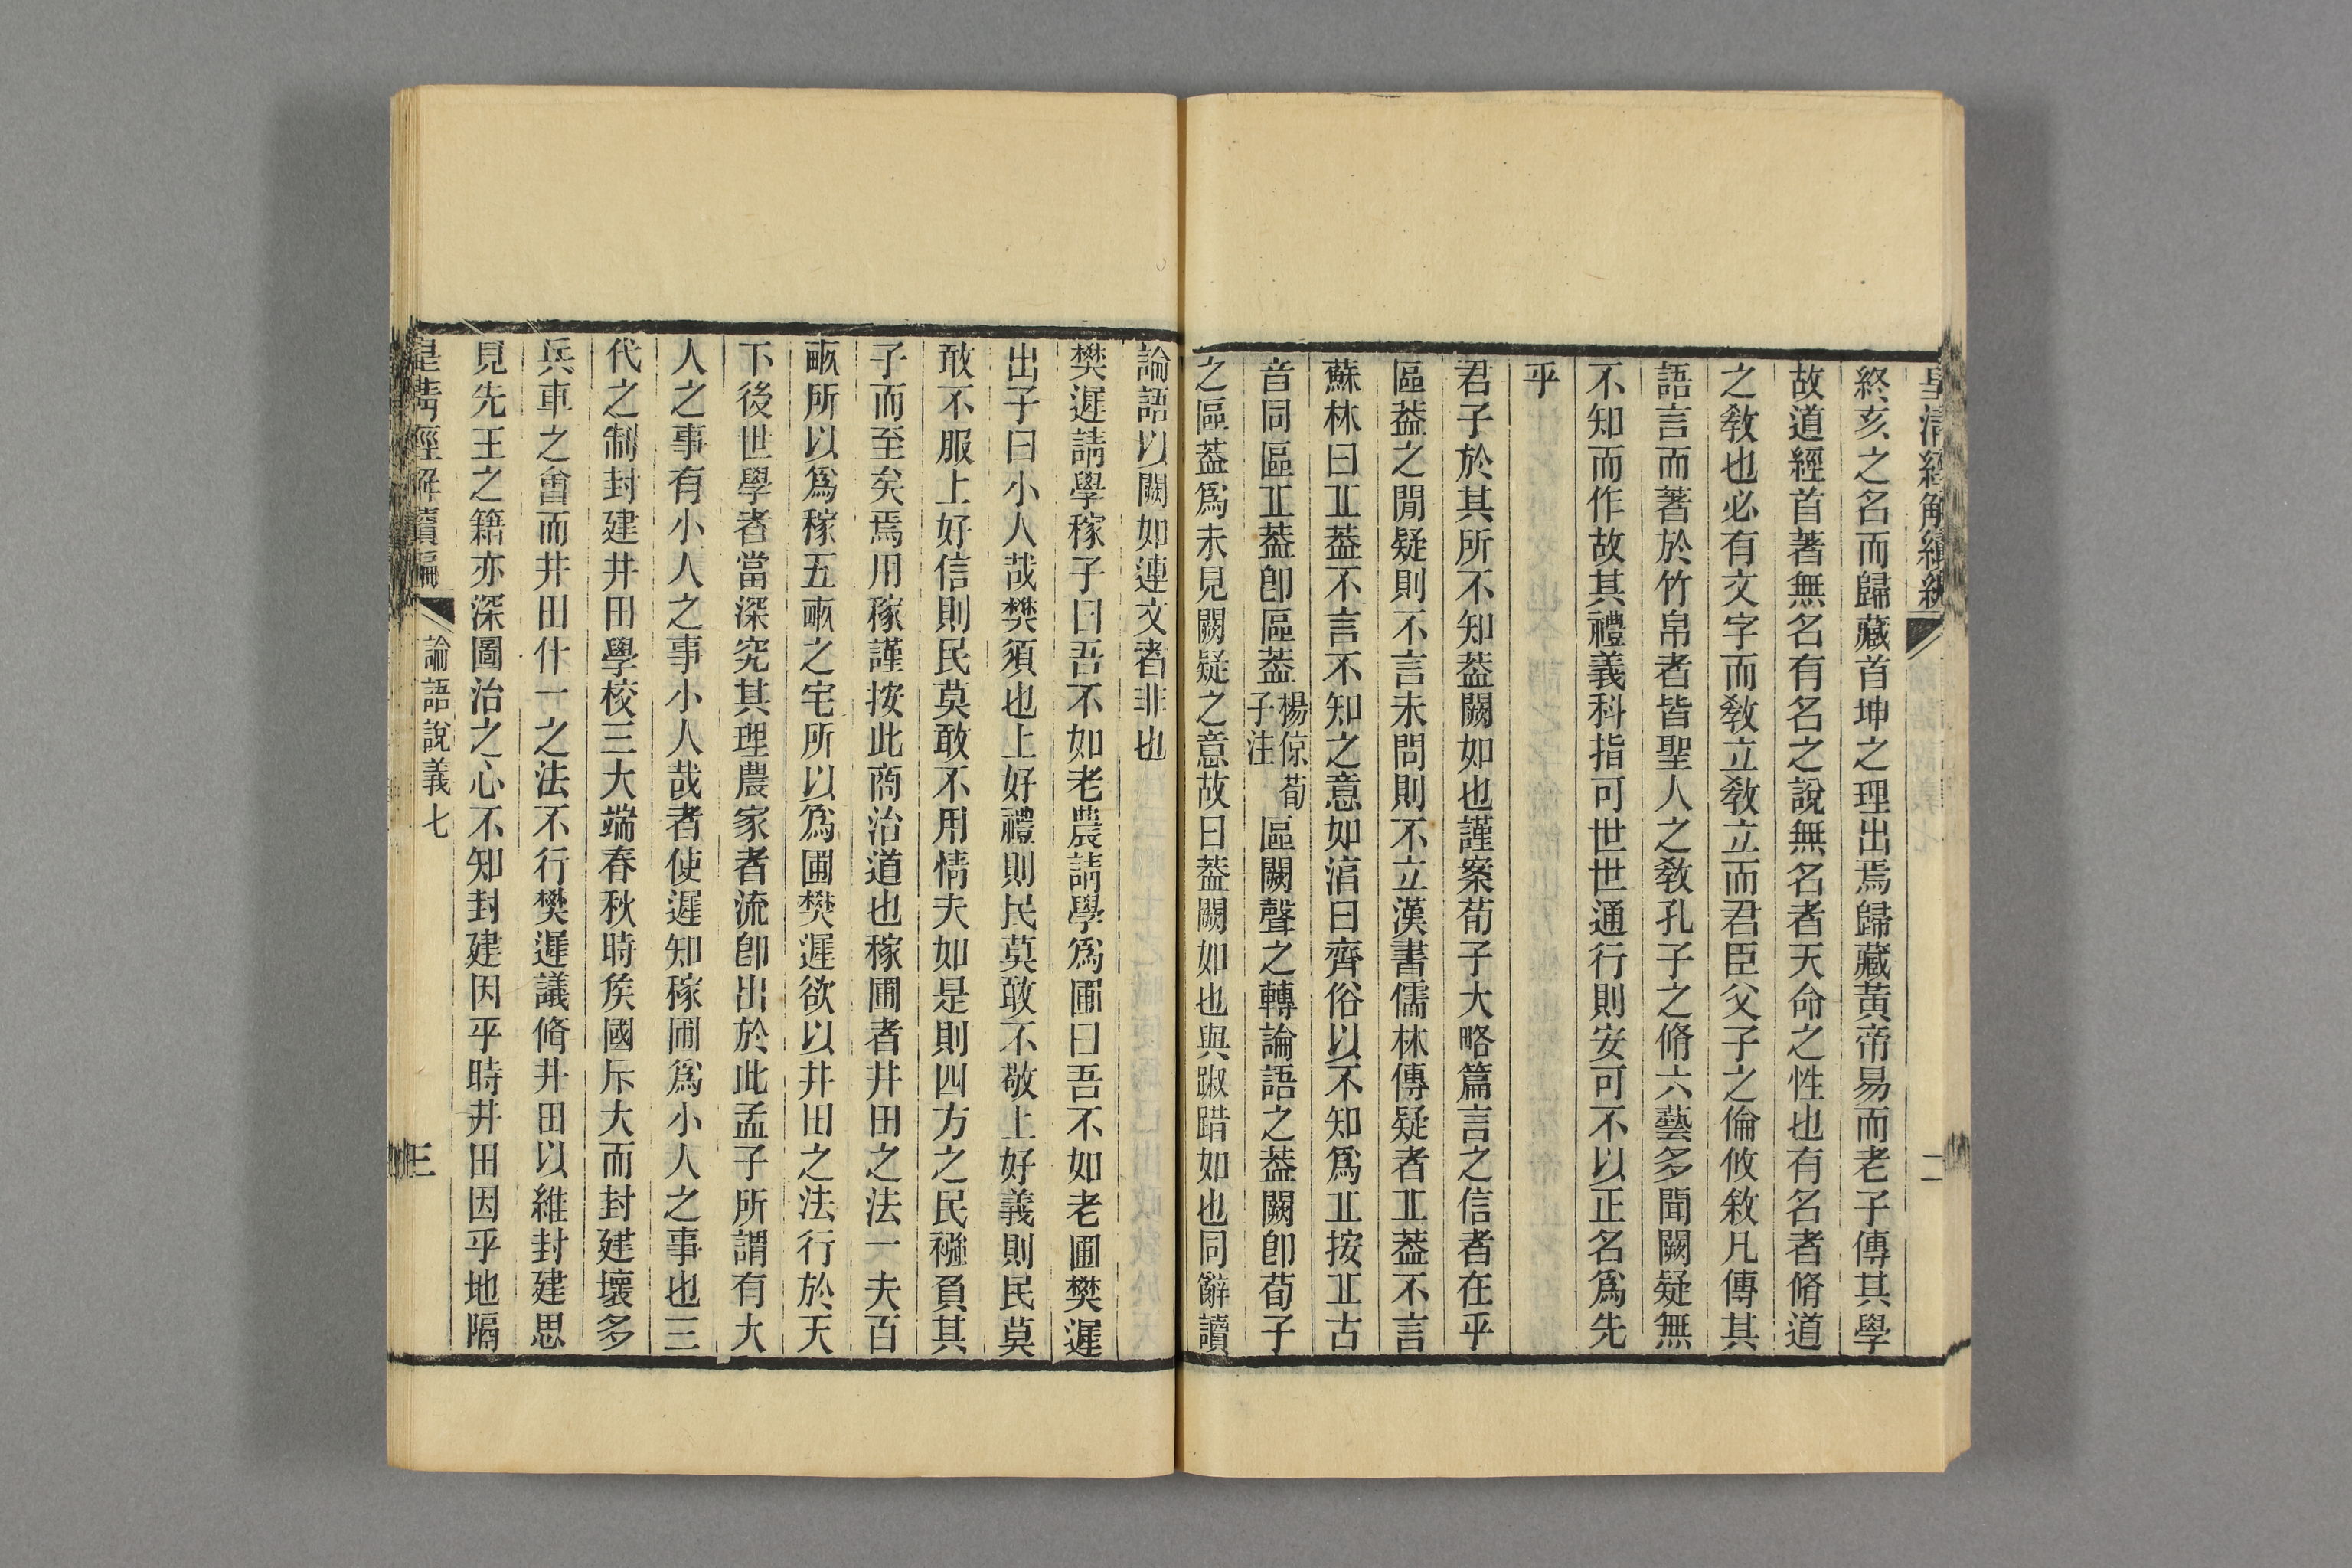 皇清經解續編
二
終亥之名而歸藏首坤之理出焉歸藏黃帝易而老子傳其學
故道經首著無名有名之說無名者天命之性也有名者脩道
之敎也必有文字而敎立敎立而君臣父子之倫攸敘凡傳其
語言而著於竹帛者皆聖人之敎孔子之脩六藝多聞闕疑無
不知而作故其禮義科指可世世通行則安可不以正名爲先
乎
君子於其所不知葢闕如也謹案荀子大略篇言之信者在乎
區葢之閒疑則不言未問則不立漢書儒林傳疑者丠葢不言
蘇林曰丠葢不言不知之意如湻曰齊俗以不知爲丠按丠古
音同區丠葢卽區葢楊倞荀子注區闕聲之轉論語之葢闕卽荀子
之區葢爲未見闕疑之意故曰葢闕如也與踧踖如也同辭讀
論語以闕如連文者非也
樊遲請學稼子曰吾不如老農請學爲圃曰吾不如老圃樊遲
出子曰小人哉樊須也上好禮則民莫敢不敬上好義則民莫
敢不服上好信則民莫敢不用情夫如是則四方之民襁負其
子而至矣焉用稼謹按此商治道也稼圃者井田之法一夫百
畞所以爲稼五畞之宅所以爲圃樊遲欲以井田之法行於天
下後世學者當深究其理農家者流卽出於此孟子所謂有大
人之事有小人之事小人哉者使遲知稼圃爲小人之事也三
代之制封建井田學校三大端春秋時矦國斥大而封建壞多
兵車之會而井田什一之法不行樊遲議脩井田以維封建思
見先王之籍亦深圖治之心不知封建因乎時井田因乎地隔
皇淸經解續編
論語說義七
三